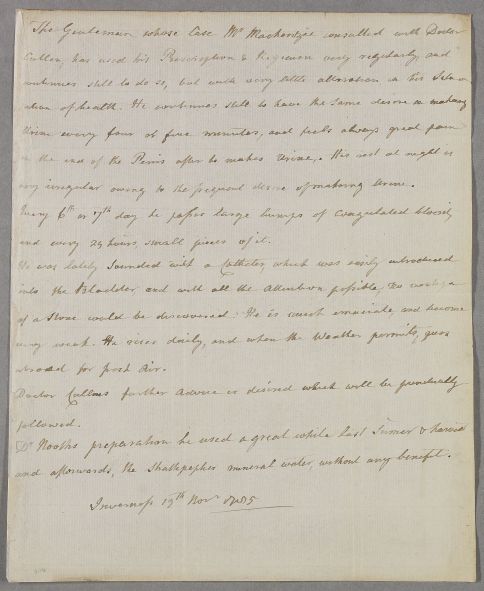 The Gentleman whose Case Mr Mackenzie consulted with Doctor
Cullen, has used his Prescription & Regimen very regularly, and
continues still to do so, but with very little alteration in his
of health. He continues still to have the same desire in making
Urine every four or five minutes, and feels always great pain
in the end of the Penis after he makes Urine. His rest at night is
very irregular owing to the frequent desire of making Urine.
Every 6th or 7th day he passes large lumps of Coagulated blood,
and every 24 hours, small pieces of it.
He was lately Sounded with a Catheter, which was easily introduced
into the Bladder and with all the Attention possible, no
of a Stone could be discovered. He is much emaciate, and become
very weak. He rises daily, and when the Weather permits, goes
abroad for fresh Air.
Doctor Cullens further Advice is desired which will be punctually
followed.
Dr Nooths preparation he used a great while last Sumer & harvest
and afterwards, the mineral water, without any benefit.
Inverness 19th Novr 1785